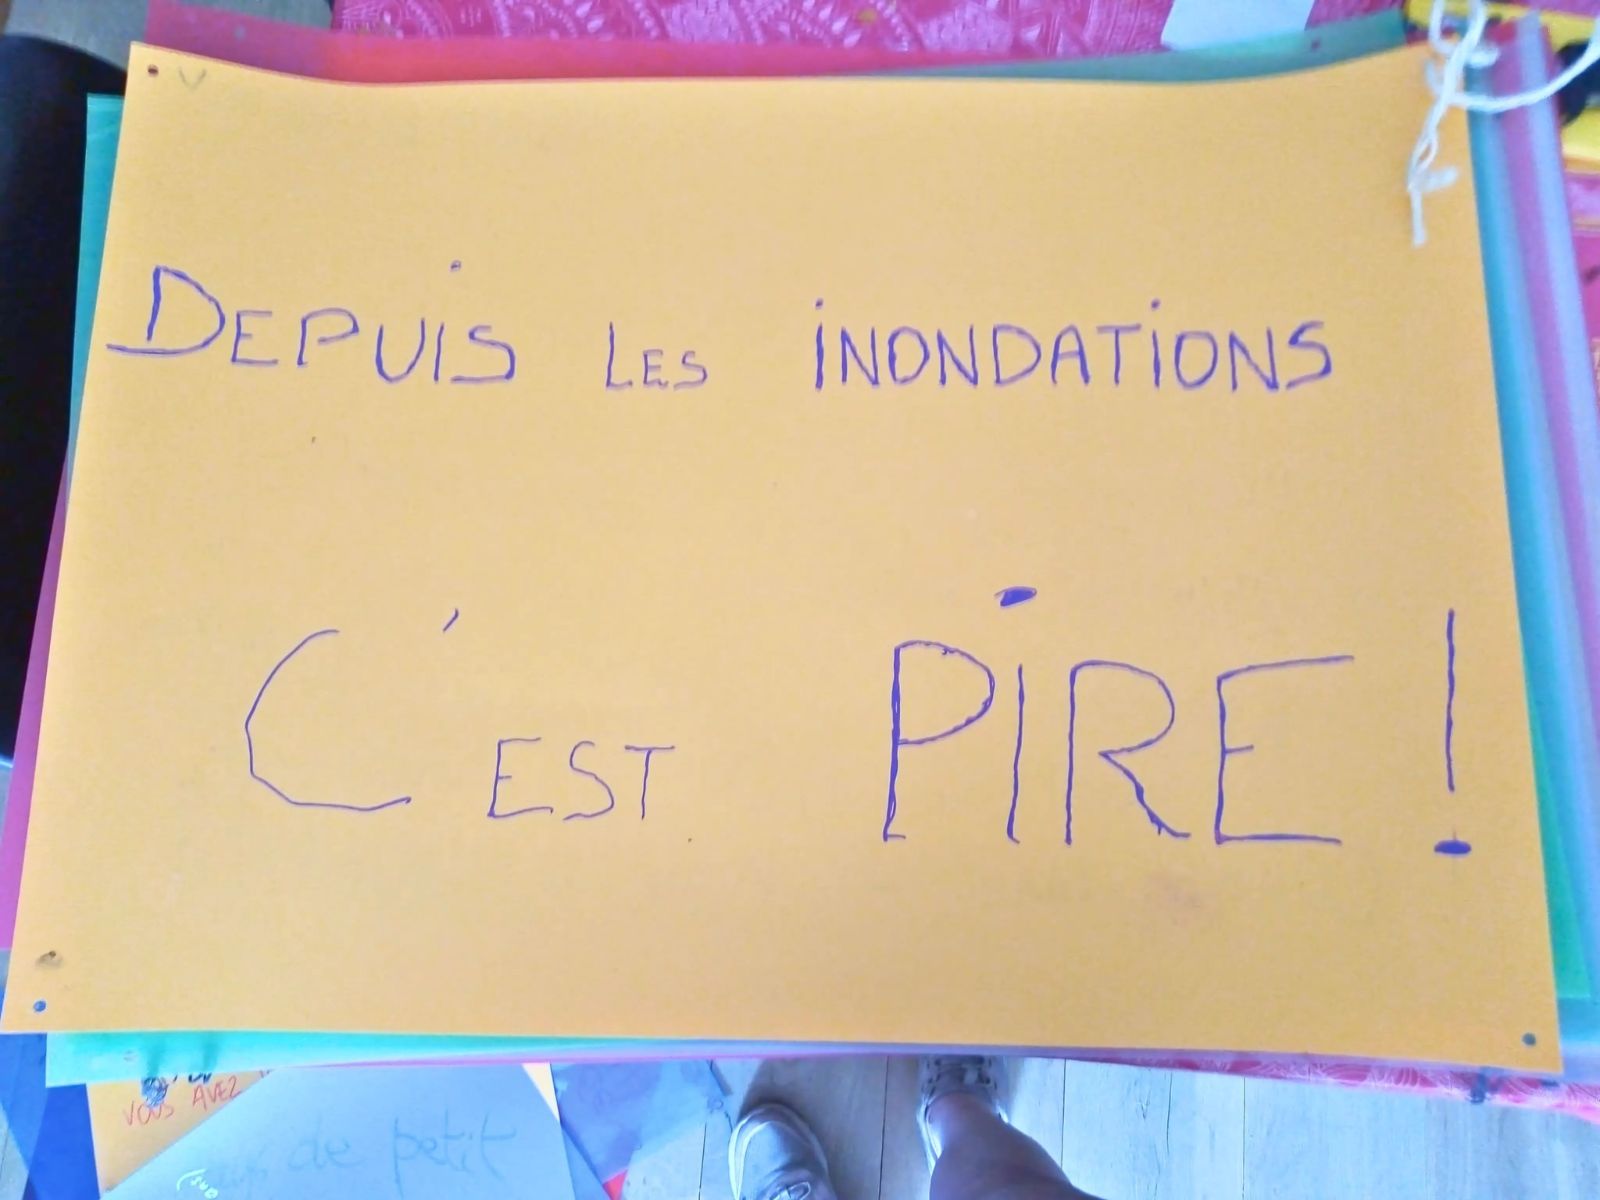 DEPUIS LES iNONDATiONS
C'EST PiRE !
VOUS AVEZ
de petit